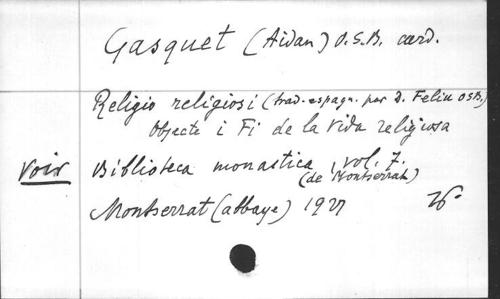 Gasquet (Aidan) O.S.B. card.
Religio religiosi (trad. espagn. par D. Feliu OSB,)
Objecte i Fi de la vida religiosa
Voir Biblioteca monastica, vol. 7.
(de Montserrat)
Montserrat (abbaye) 1927